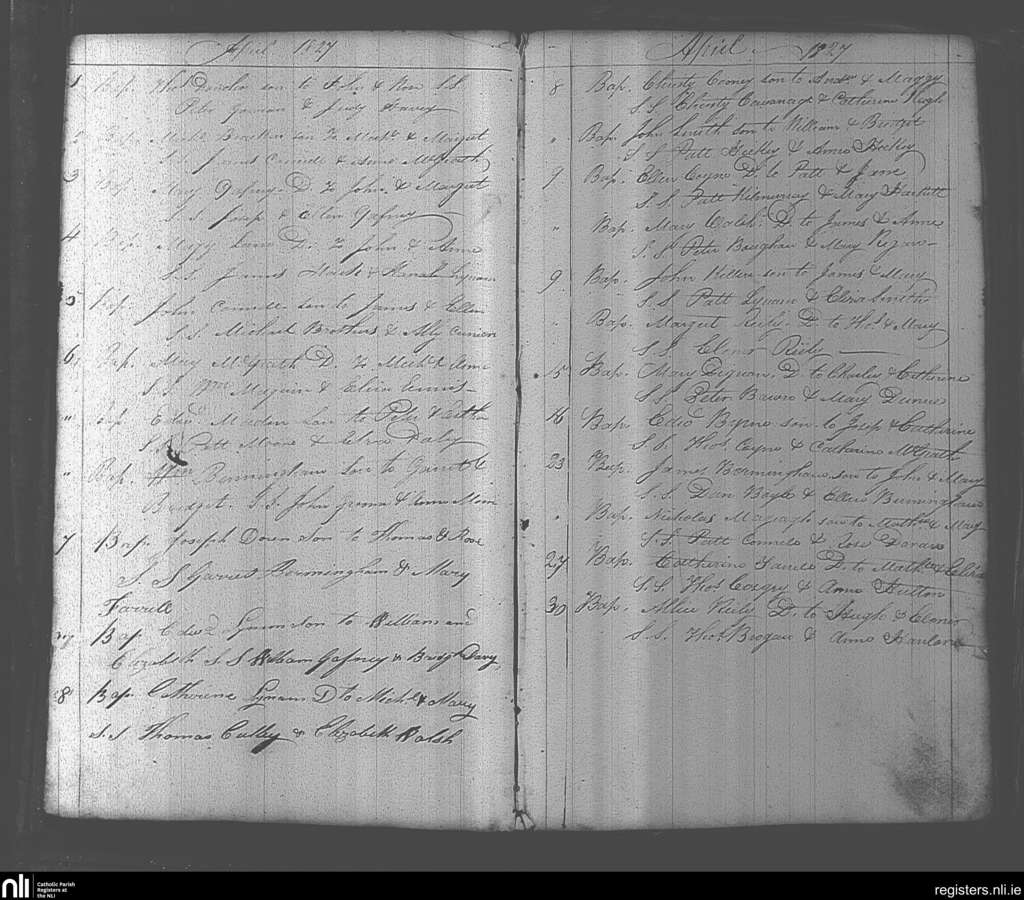 April 1827
1 Bap. Thos son to John & Rose S.S.
Peter & Judy Harvey
2 Bap. Michl Bracken son to Michl & Margret
S.S. James Connell & Anne McGrath
3 Bap. Mary Gafney D. to John & Margret
S.S. Josp & Ellen Gafney
4 Bap. D. to John & Anne
S.S. James & Hanah Lynam
5 Bap. John Connell son to James & Ellen
S.S. Michael Brothers & Ally
6 Bap. Mary McGrath D. to Michl & Anne
S.S. Wm & Ennis
" Bap. Edwd Madon son to Peter &
S.S. Patt Moore & Eliza Daly
" Bap. Bermingham son to Garrett &
Bridget. S.S. John & Anne
7 Bap. Joseph Doren son to Thomas & Rose
S S Garret Bermingham & Mary
Farrell
Bap Edwd Lynam son to William and
Elizabeth S S William Gafney & Bridgt Davy
8 Bap Catherine Lynam D to Michl & Mary
S.S Thomas Culley & Elizabeth Walsh
April 1827
8 Bap. Christy Cooney son to Andw & Maggy
S.S. Christy Cavanagh & Catherine Hugh
" Bap. John Smith son to William & Bridget
S S Patt Hickey & Anne Hickey
9 Bap. Ellen Coyne D. to Patt & Jane
S.S. Patt Kilmurray & Mary
" Bap. Mary Walsh D. to James & Anne
S.S. Peter Baughan & Mary
9 Bap. John son to James & Mary
S.S. Patt Lynam & Eliza Smith
" Bap. Margret Reily D. to Thos & Mary
S.S. Elenor Reily
15 Bap. Mary D. to Charles & Catherine
S.S. Peter & Mary Dunne
16 Bap. Edwd Byrne son to Josp & Catharine
S.S. Thos Coyne & Catharine McGrath
23 Bap. James Bermingham son to John & Mary
S.S. Dan Boyle & Ellen Bermingham
" Bap. Nicholas son to Mathw & Mary
S.S. Patt Connell & Rose
27 Bap. Catherine Farrell D. to Mathw &
S.S. Thos & Anne Hutton
30 Bap. Allice Reily D. to Hugh & Elenor
S.S. Thos Brogan & Anne Hanlon
nli Catholic Parish
Registers at
the NLI
registers.nli.ie